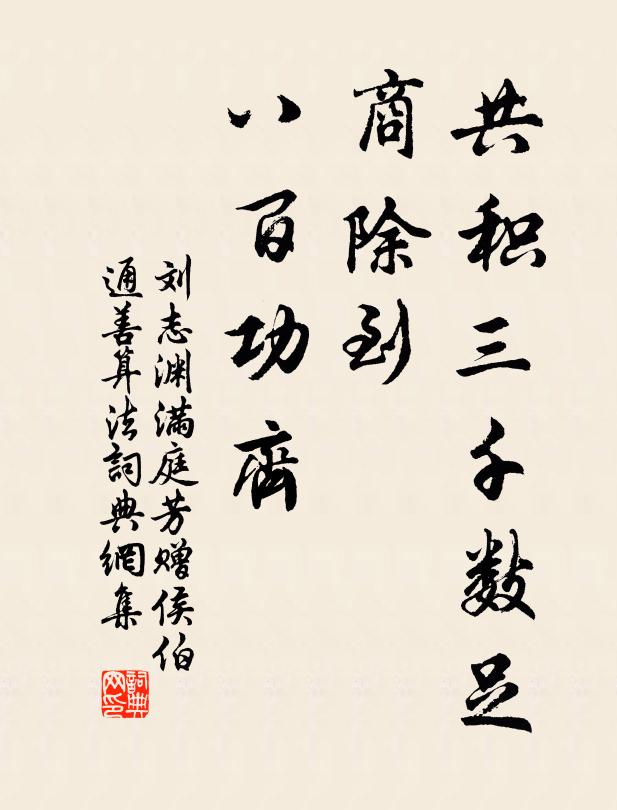 共积三千数足
商除到
八百功齊
刘志渊满庭芳赠侯伯
通善算法詞典網集
詞典
网印